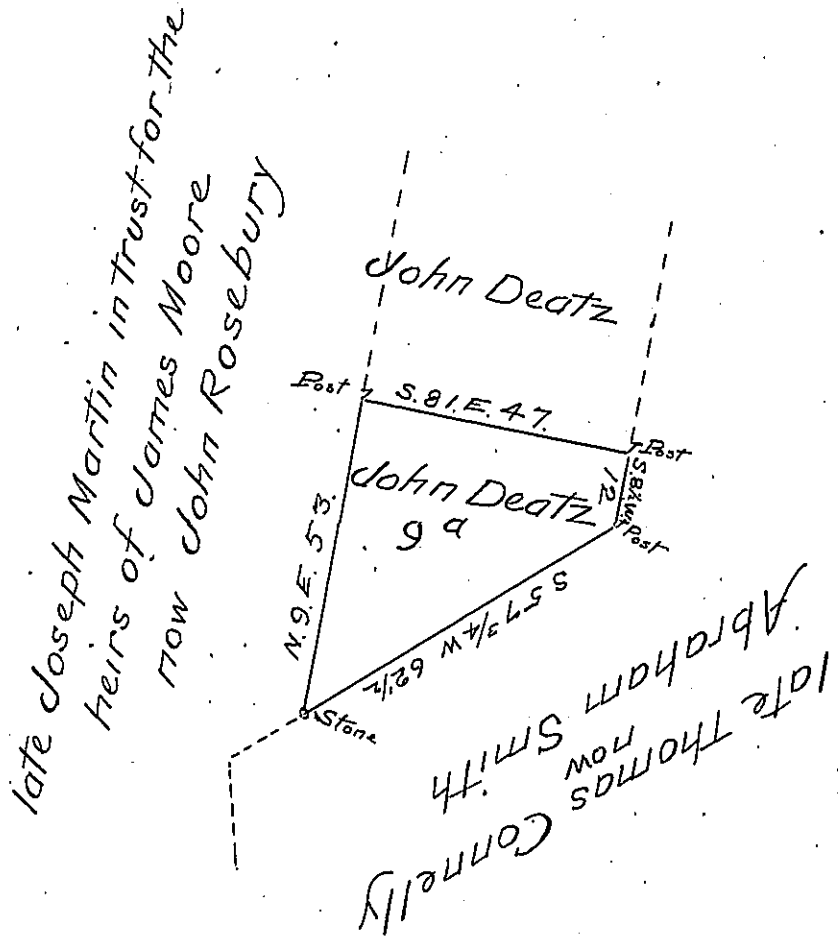 late Joseph Martin in trust for the
heirs of James Moore
now John Rosebury
John Deatz
Post
S. 81. E. 47.
Post
S. 8½ W.
12
Post
John Deatz
9 a
N. 9. E. 53.
S 57 3/4 W 62 1/2
Stone
late Thomas Connelly
now
Abraham Smith